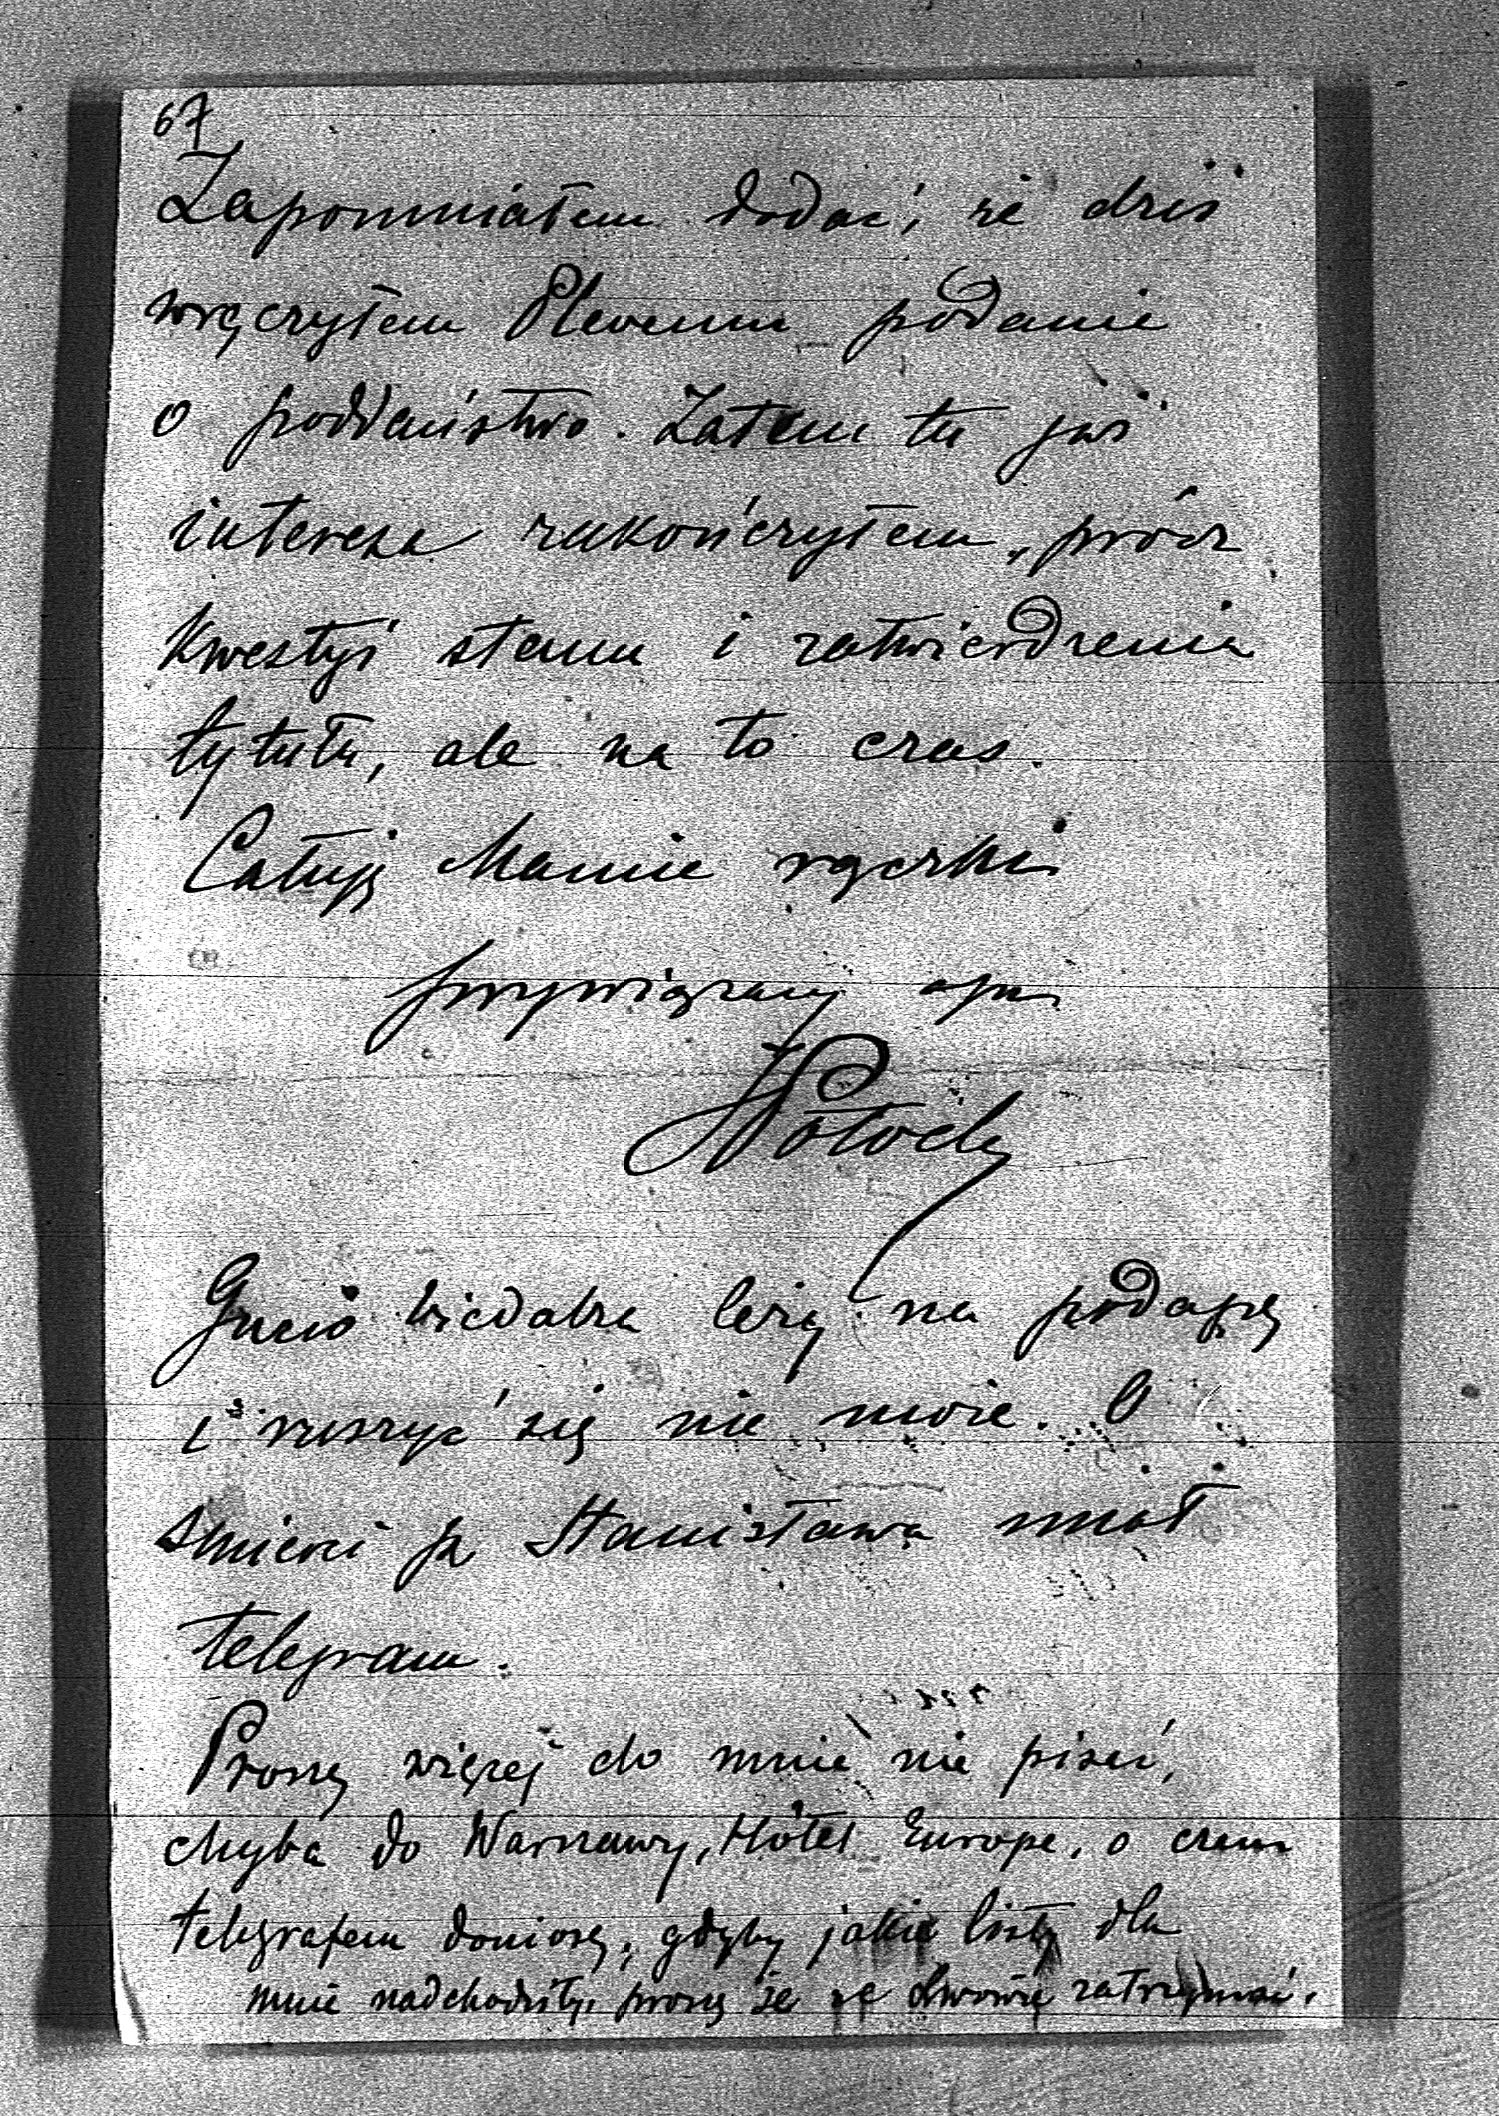 67
Zapomniałem dodać, że dziś
wręczyłem Plevemu podanie
o poddaństwo. Zatem tu już
interesa zakończyłem, prócz
kwestyi stanu i zatwierdzenia
tytułu, ale na to czas.
Całuję Mamie rączki
przywiązany syn
Potocki
Gucio biedatka leży na podagrę
i ruszyć się nie może. O
śmierci pa Stanisława miał
telegram.
Proszę więcej do mnie nie pisać,
chyba do Warszawy, Hôtel Europe, o czem
telegrafem doniosę, gdyby jakie listy dla
mnie nadchodziły, proszę je we Lwowie zatrzymać.